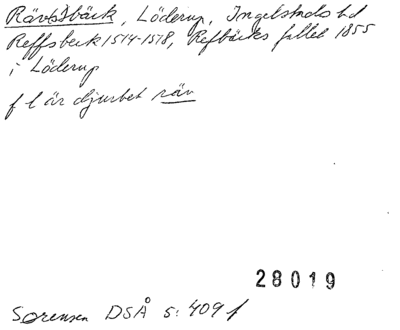 Rävsbäck, Löderup, Ingelstads hd
Reffsbeck 1514-1518, Refbäcks fallet 1855
i Löderup
f l är djurbet räv
28019
Sørensen DSÅ s: 409 f